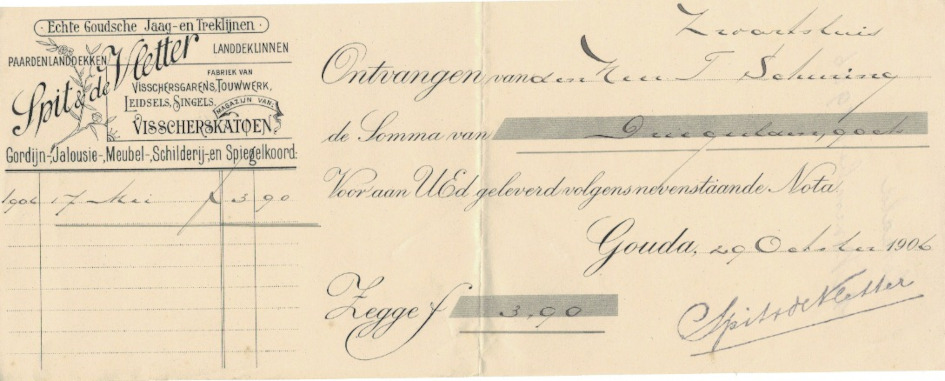 Echte Goudsche Jaag- en Treklijnen
PAARDENLANDDEKKEN
LANDDEKLINNEN
Spit & de Vletter
FABRIEK VAN
VISSCHERSGARENS, TOUWWERK,
LEIDSELS, SINGELS,
MAGAZIJN VAN:
VISSCHERSKATOEN.
Gordijn-, Jalousie-, Meubel-, Schilderij- en Spiegelkoord:
1906 17 Mei f 3 90
Zwartsluis
Ontvangen van den Heer T Schuring
de Somma van
Voor aan UEd geleverd volgens nevenstaande Nota
Gouda, 29 October 1906
Zegge f 3,90
Spit & de Vletter